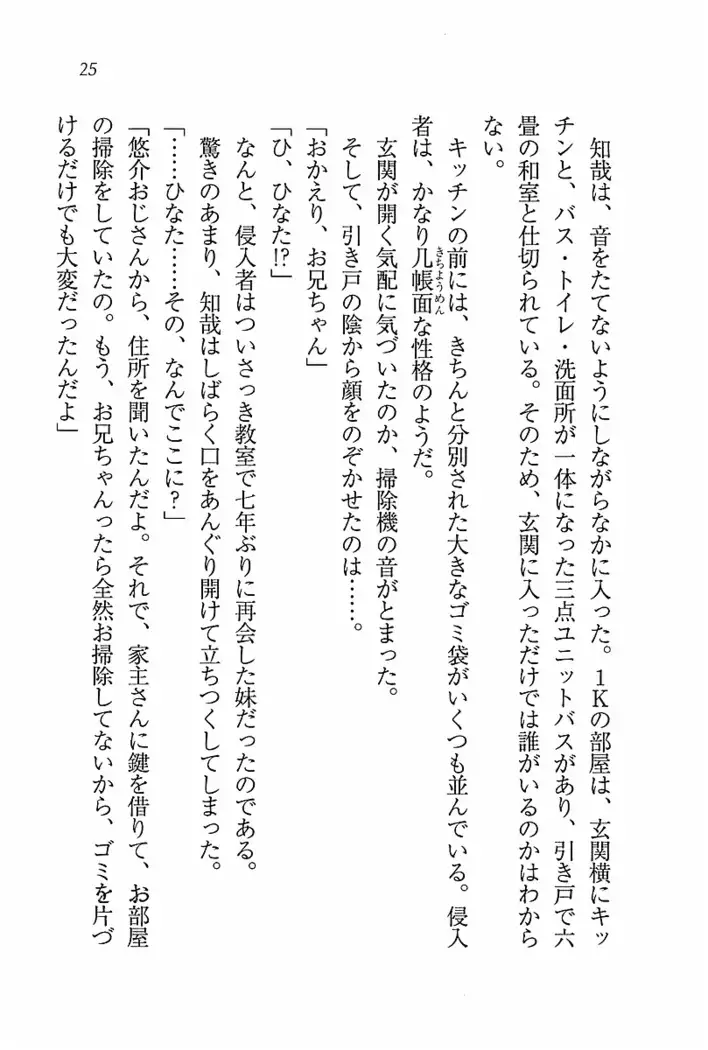 25
知哉は、音をたてないようにしながらなかに入った。１Ｋの部屋は、玄関横にキッ
チンと、バス・トイレ・洗面所が一体になった三点ユニットバスがあり、引き戸で六
畳の和室と仕切られている。そのため、玄関に入っただけでは誰がいるのかはわから
ない。
キッチンの前には、きちんと分別された大きなゴミ袋がいくつも並んでいる。侵入
者は、かなり几帳面きちようめんな性格のようだ。
玄関が開く気配に気づいたのか、掃除機の音がとまった。
そして、引き戸の陰から顔をのぞかせたのは……。
「おかえり、お兄ちゃん」
「ひ、ひなた!?」
なんと、侵入者はついさっき教室で七年ぶりに再会した妹だったのである。
驚きのあまり、知哉はしばらく口をあんぐり開けて立ちつくしてしまった。
「……ひなた……その、なんでここに？」
「悠介おじさんから、住所を聞いたんだよ。それで、家主さんに鍵を借りて、お部屋
の掃除をしていたの。もう、お兄ちゃんったら全然お掃除してないから、ゴミを片づ
けるだけでも大変だったんだよ」